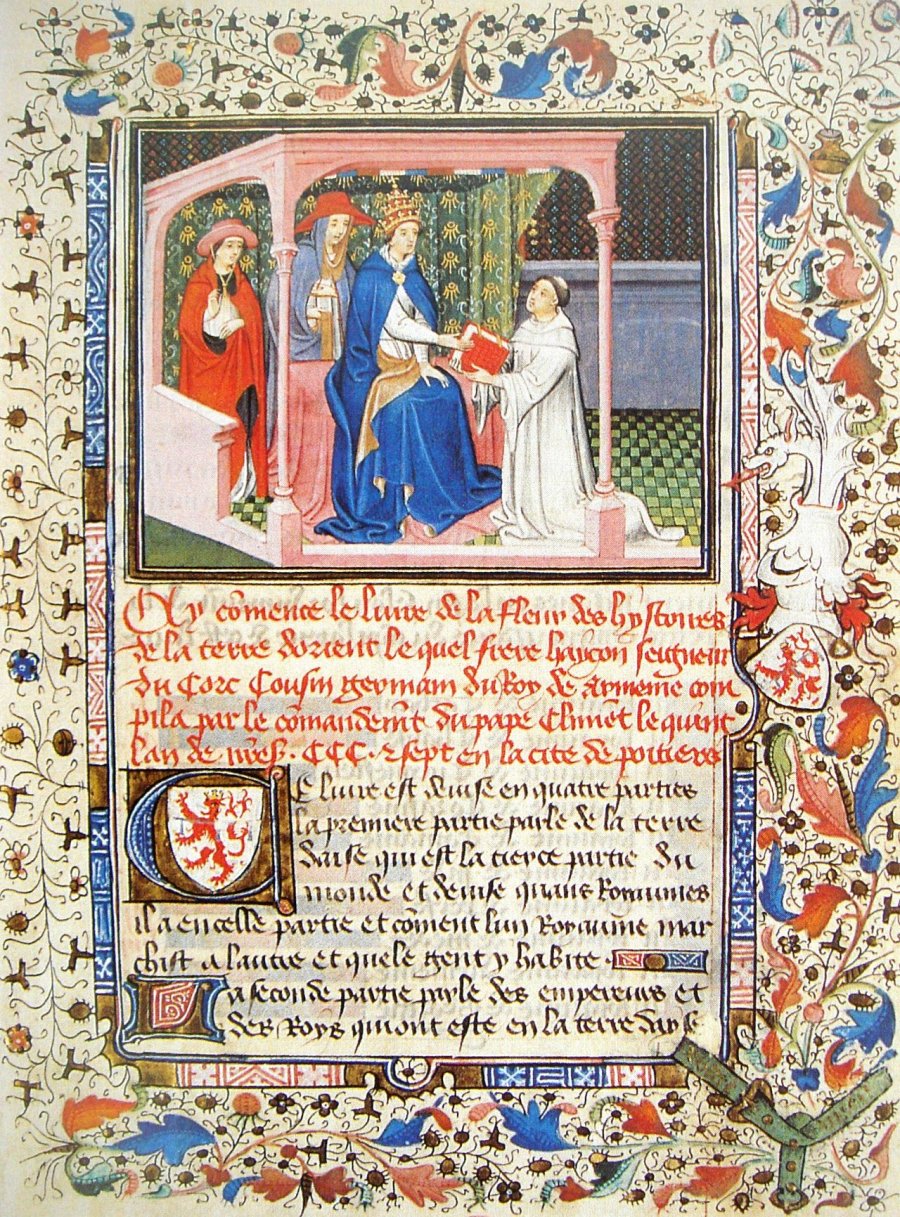 Cy cōmence le livre de la fleur des hystoires
de la terre dorient le quel frere haycon seigneur
du Corc Cousin germain du Roy de Armenie com
pila par le cōmandemēt du pape Climēt le quint
lan de nr̄e s̄ . CCC . ⁊ sept en la cite de poitiers
Ce livre est devise en quatre parties
la premiere partie parle de la terre
daise qui est la tierce partie du
monde et devise quans Royaumes
il a en celle partie et cōment lun Royaume mar
chist a lautre et quele gent y habite .
La seconde partie parle des empereurs et
des Roys qui ont este en la terre dayse